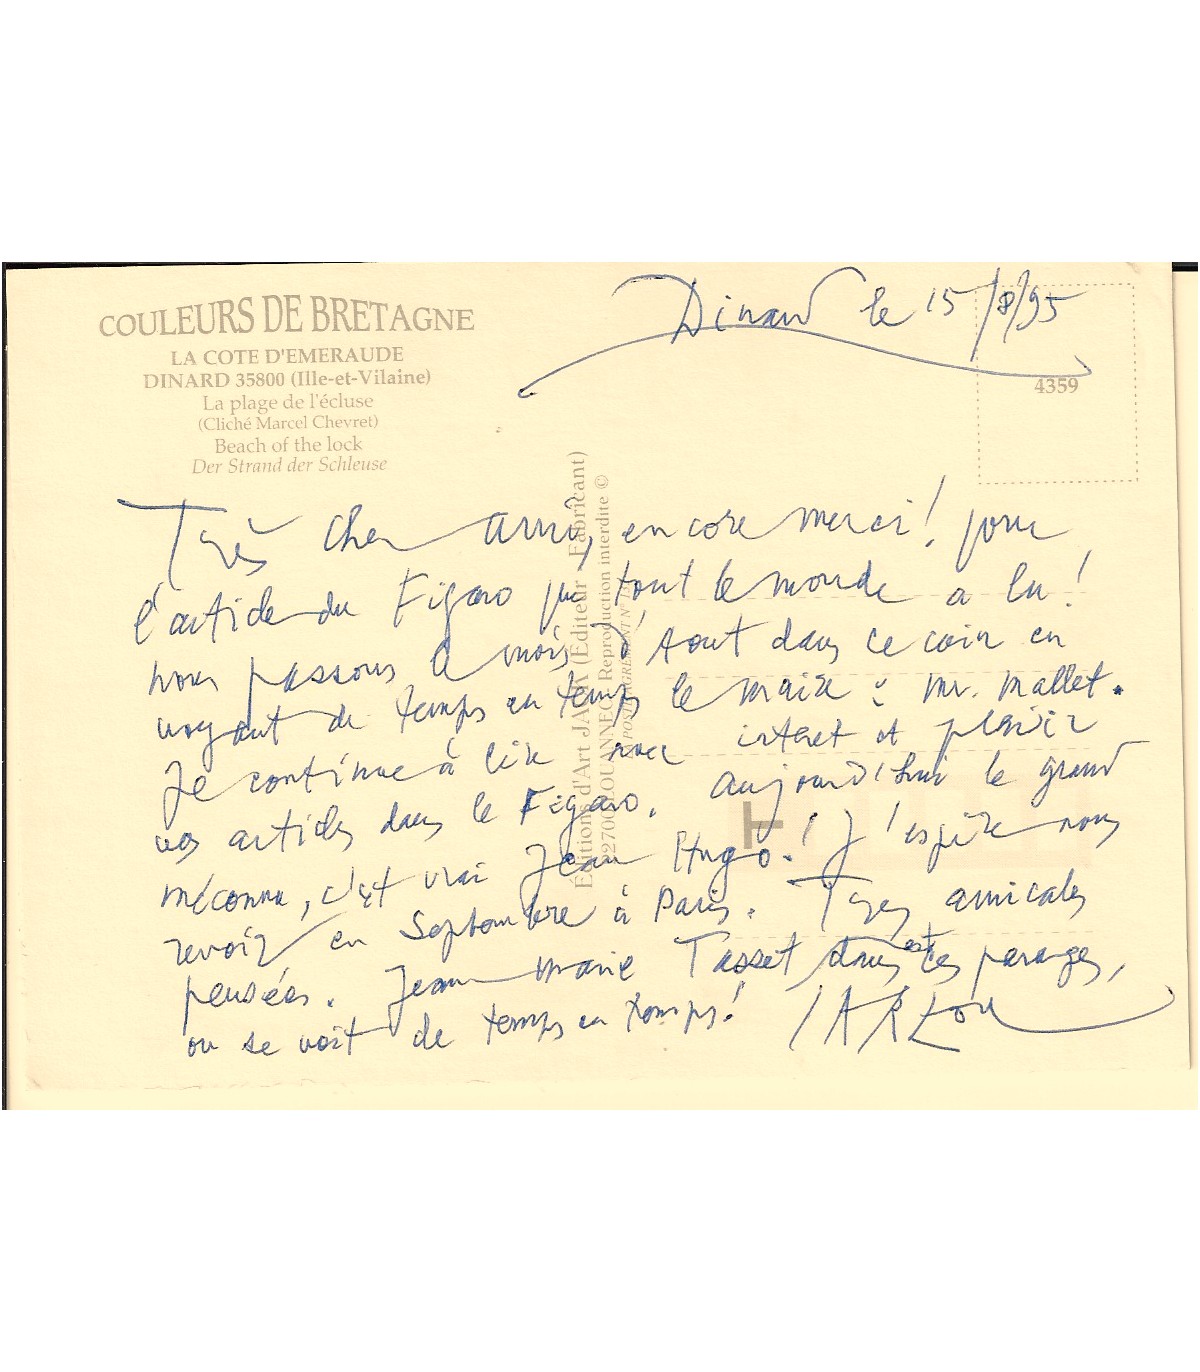 Dinard le 15/8/95
COULEURS DE BRETAGNE
LA COTE D'EMERAUDE
DINARD 35800 (Ille-et-Vilaine)
La plage de l'écluse
(Cliché Marcel Chevret)
Beach of the lock
Der Strand der Schleuse
4359
Très cher ami, encore merci! pour
l'article du Figaro que tout le monde a lu!
nous passons le mois d'Aout dans ce coin en
voyant de temps en temps le maire : Mr. Mallet.
Je continue à lire avec interet et plaisir
vos articles dans le Figaro. aujourd'hui le grand
méconnu, c'est vrai Jean Hugo! J'espère nous
revoir en Septembre à Paris. Tres amicales
pensées. Jean Marie Tasset est dans ces parages,
on se voit de temps en temps!
Éditions d'Art JACK (Éditeur - Fabricant)
22700 LOUANNEC Reproduction interdite ©